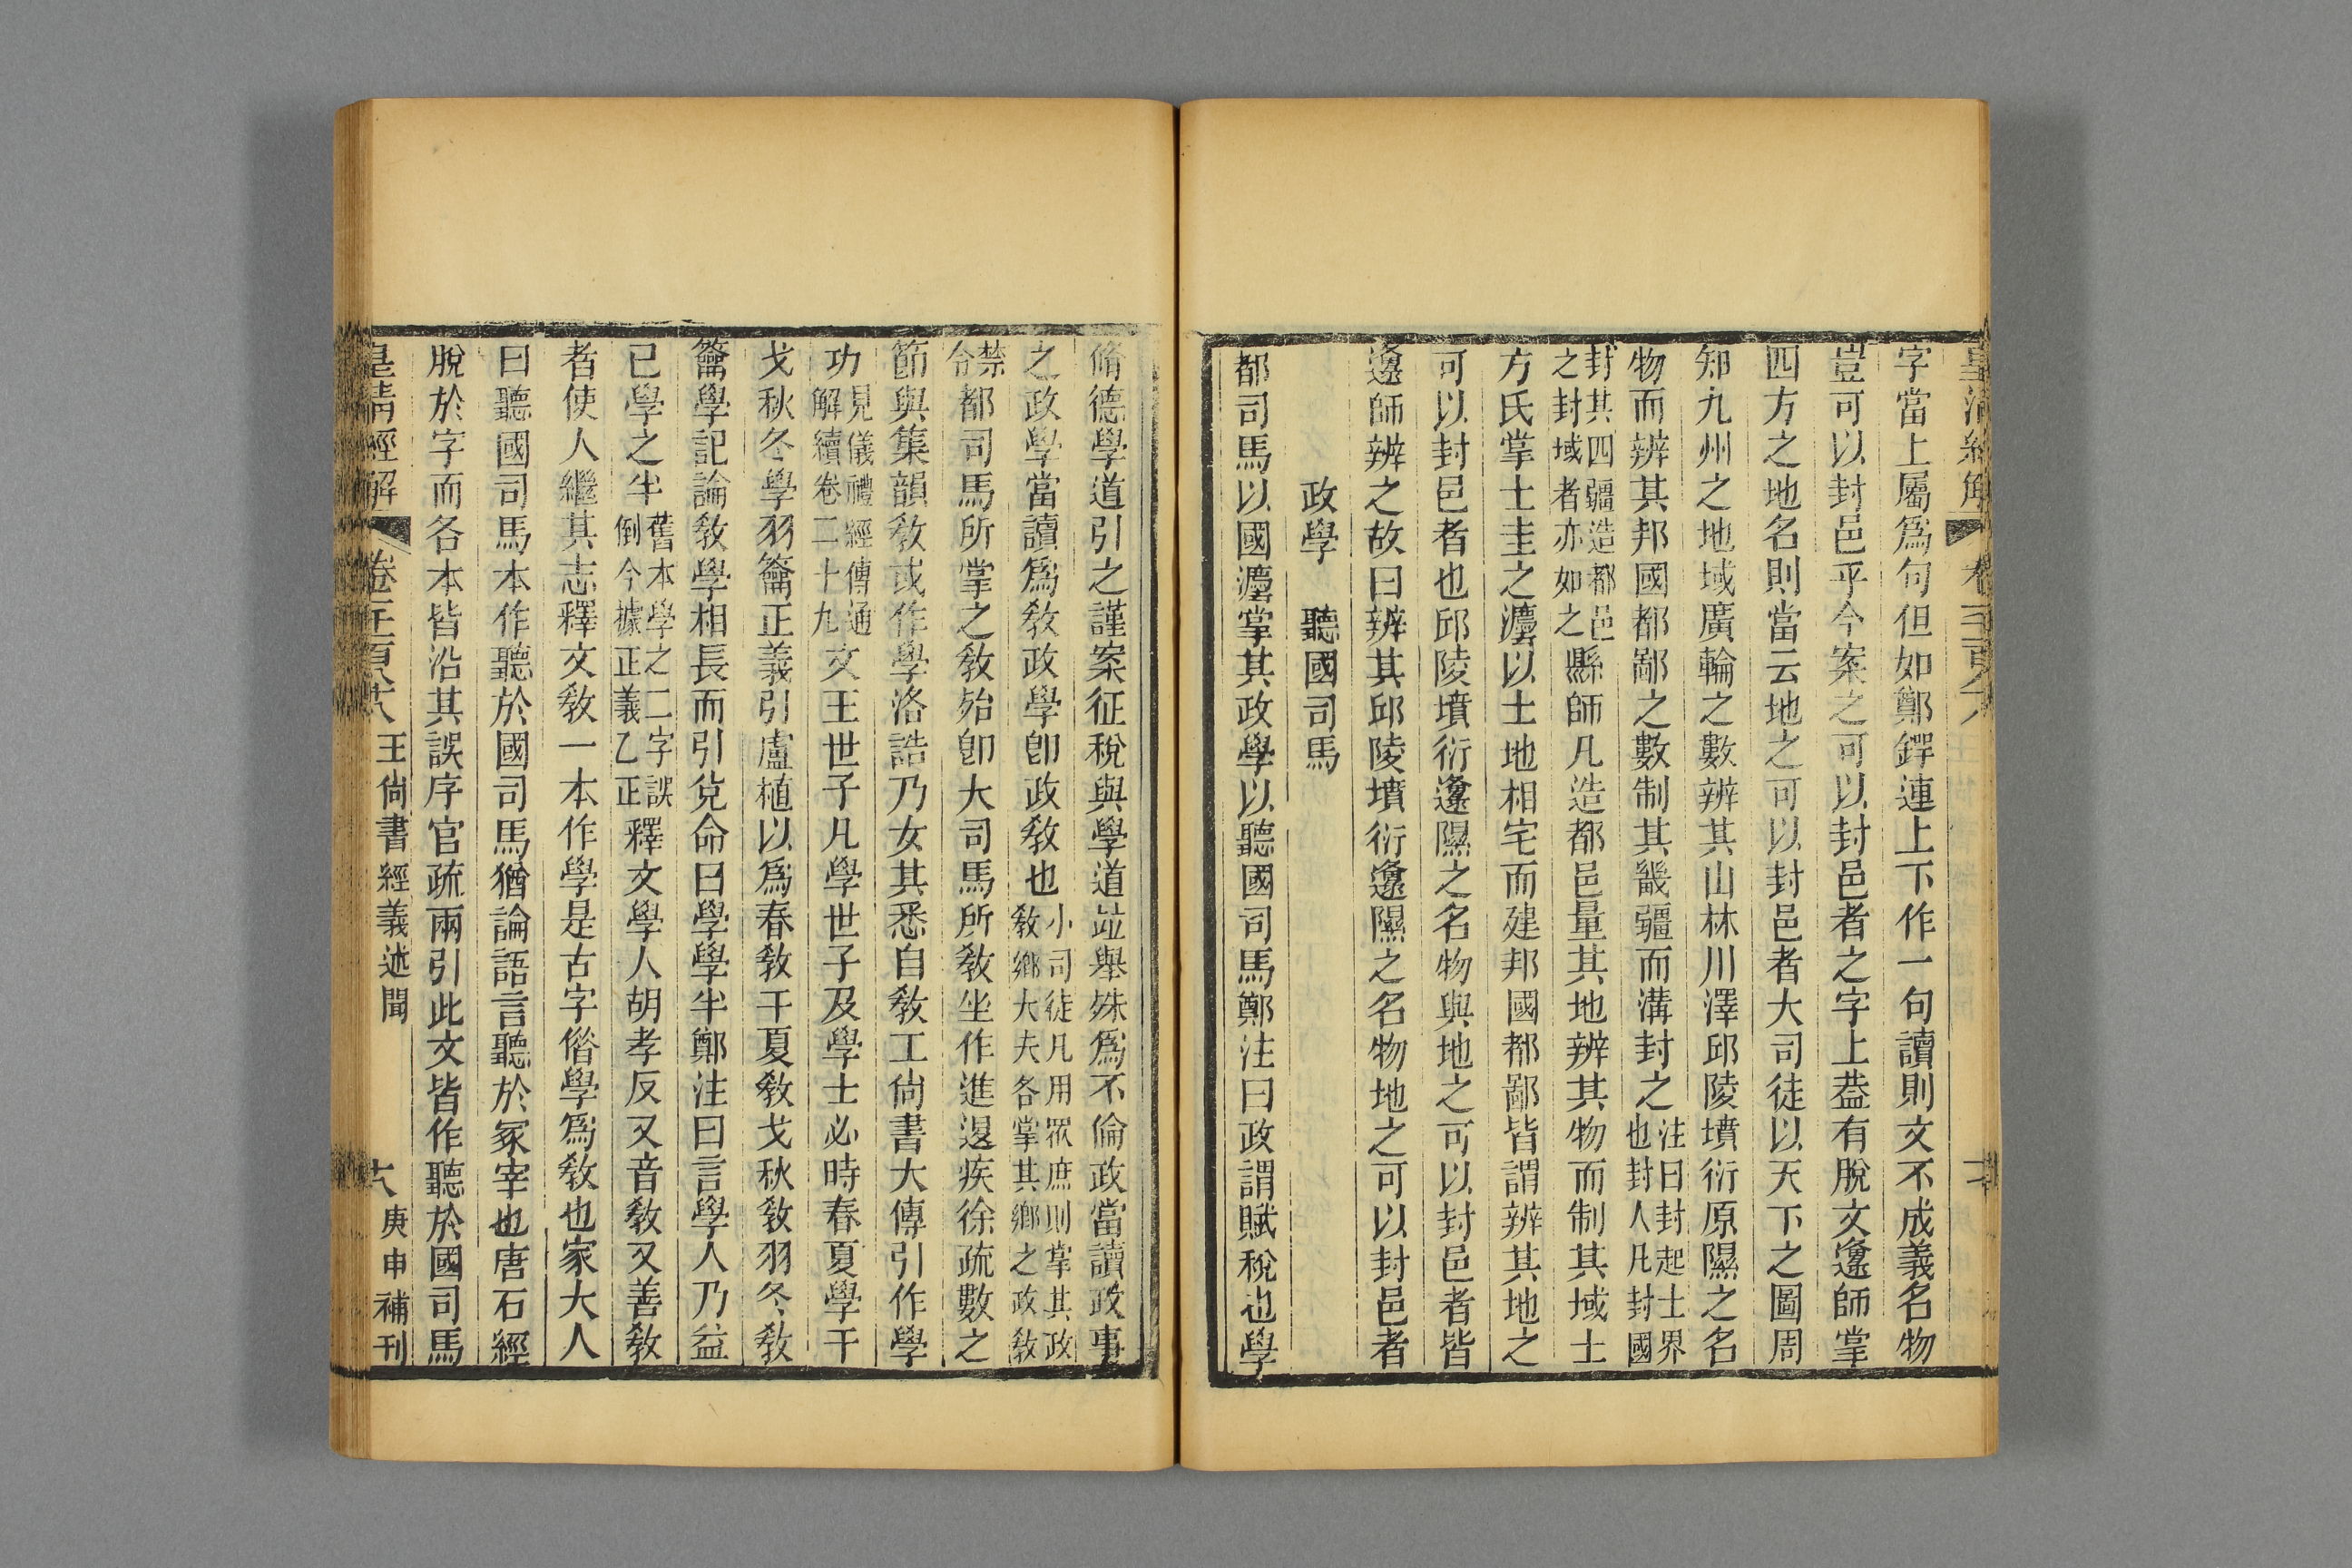 字當上屬爲句但如鄭鍔連上下作一句讀則文不成義名物
豈可以封邑乎今案之可以封邑者之字上葢有脫文邍師掌
四方之地名則當云地之可以封邑者大司徒以天下之圖周
知九州之地域廣輪之數辨其山林川澤邱陵墳衍原隰之名
物而辨其邦國都鄙之數制其畿疆而溝封之注曰封起土界也封人凡封國
封其四疆造都邑之封域者亦如之縣師凡造都邑量其地辨其物而制其域土
方氏掌土圭之灋以土地相宅而建邦國都鄙皆謂辨其地之
可以封邑者也邱陵墳衍邍隰之名物與地之可以封邑者皆
邍師辨之故曰辨其邱陵墳衍邍隰之名物地之可以封邑者
政學 聽國司馬
都司馬以國灋掌其政學以聽國司馬鄭注曰政謂賦稅也學
脩德學道引之謹案征稅與學道竝舉殊爲不倫政當讀政事
之政學當讀爲敎政學卽政敎也小司徒凡用衆庶則掌其政敎鄉大夫各掌其鄉之政敎
禁令都司馬所掌之敎殆卽大司馬所敎坐作進退疾徐疏數之
節與集韻敎或作學洛誥乃女其悉自敎工尙書大傳引作學
功見儀禮經傳通解續卷二十九文王世子凡學世子及學士必時春夏學干
戈秋冬學羽籥正義引盧植以爲春敎干夏敎戈秋敎羽冬敎
籥學記論敎學相長而引兌命曰學學半鄭注曰言學人乃益
已學之半舊本學之二字誤倒今據正義乙正釋文學人胡孝反又音敎又善敎
者使人繼其志釋文敎一本作學是古字偕學爲敎也家大人
曰聽國司馬本作聽於國司馬猶論語言聽於冢宰也唐石經
脫於字而各本皆沿其誤序官疏兩引此文皆作聽於國司馬
皇淸經解 王尙書經義述聞 庚申補刊